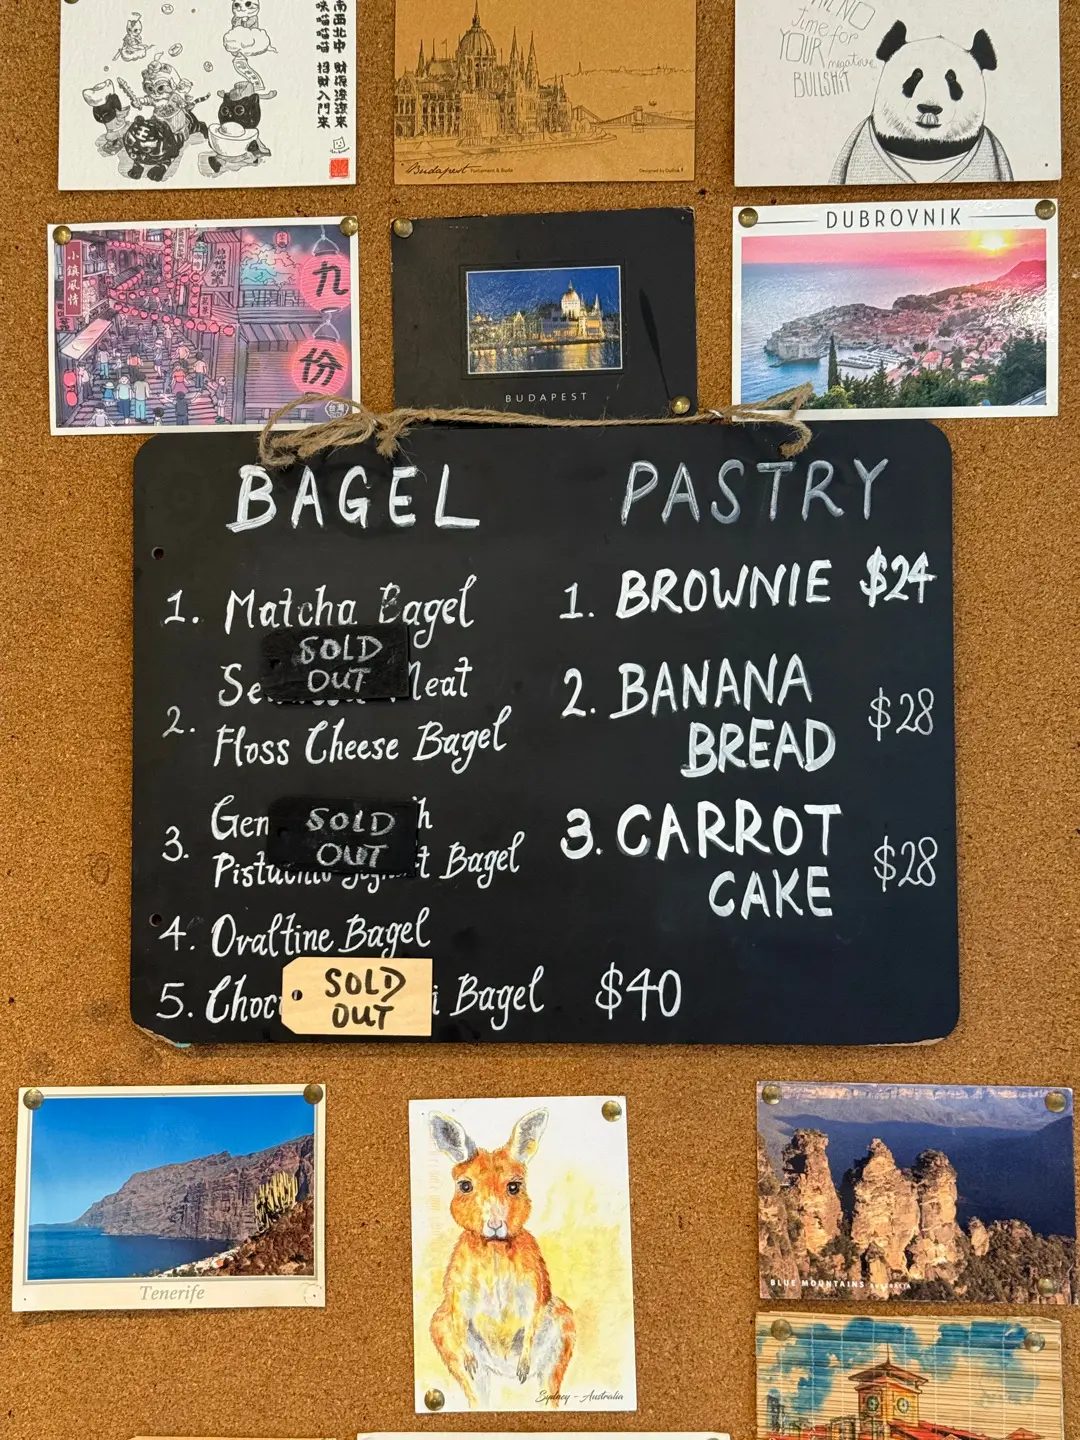 南西北中 財源滾滾來
喵喵喵 招財入門來
Budapest Parliament & Buda
Designed by
NO
time for
YOUR negative
BULLSHIT
小鎮風情
九
份
台灣
BUDAPEST
DUBROVNIK
BAGEL
1. Matcha Bagel
SOLD
OUT
Meat
2.
Floss Cheese Bagel
SOLD
OUT
3.
Bagel
4. Ovaltine Bagel
5.
SOLD
OUT
Bagel $40
PASTRY
1. BROWNIE $24
2. BANANA
BREAD $28
3. CARROT
CAKE $28
Tenerife
Sydney - Australia
BLUE MOUNTAINS AUSTRALIA